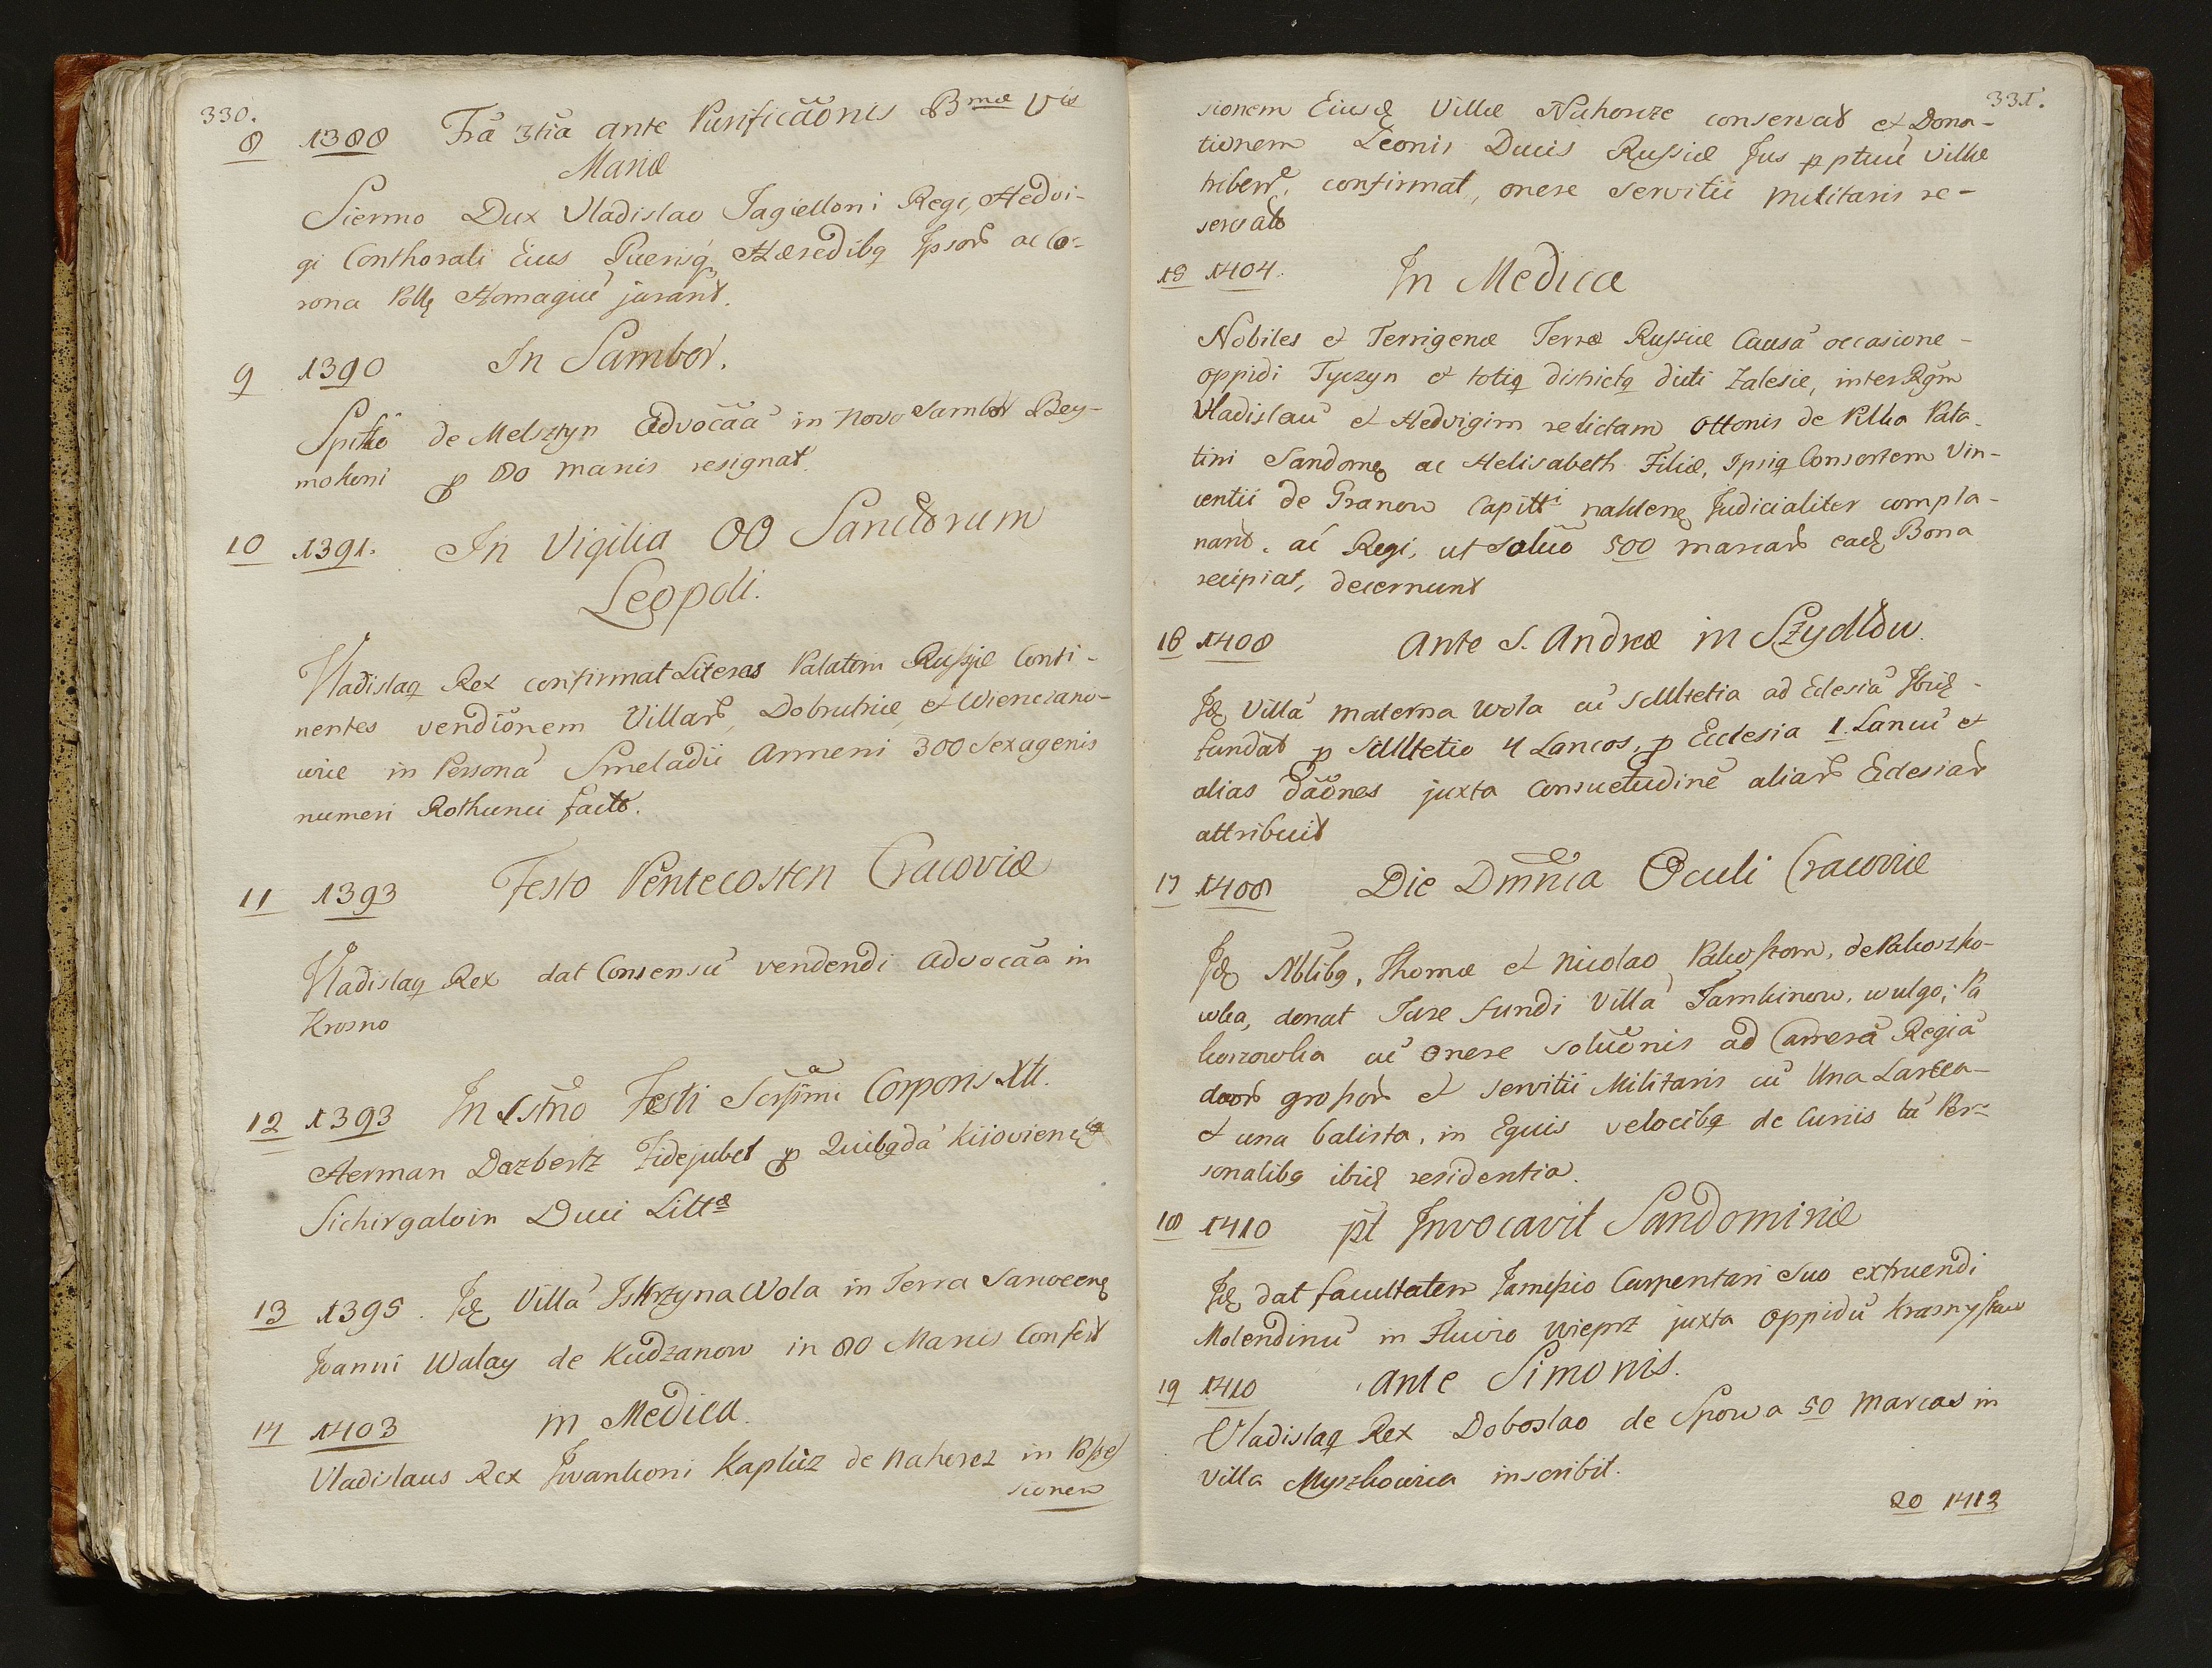 330.
8 1388 Frã 3tiã ante Purificãõnis Bmæ Vis
Mariæ
Siermo Dux Vladislao Jagielloni Regi, Hedvi-
gi Conthorali Eius Pueris q Hæredibq Ipsor ac Co-
rona Pollę Homagiũ jurant.
9 1390 In Sambor.
Spitko de Melsztyn Advocãã in Novo Sambor Bey-
mokoni p 80 Marcis resignat.
10 1391. In Vigilia OO Sanctorum
Leopoli.
Vladislaq Rex confirmat Literas Palatini Russiæ Conti-
nentes vendiõnem Villar, Dobrutriæ et Wienczano-
wice in Persona Smeladii Armeni 300 Sexagenis
numeri Rothunii facto.
11 1393 Festo Pentecosten Cracoviæ
Vladislaq Rex dat Consensũ vendendi Advocãã in
Krosno
12 1393 In Cstño Festi Scrssimi Corporis Xti.
Herman Dazbertz Fidejubet p Quibgdã Kiiovienę
Sichirgaloin Duci Littæ
13 1395. Idę Villã Iskrzyna Wola in Terra Sanocenę
Joanni Walay de Kudzanow in 80 Marcis Confert
14 1403 in Medica.
Vladislaus Rex Iwankoni Kapluz de Nahorcz in Posses
sionem
331.
sionem Eiusdę Villæ Nahorcze conservat et Dona-
tionem Leonis Ducis Russiæ Jus pptuũ Villæ
tribente, confirmat, onere servitii militaris re-
servato
15 1404. In Medica
Nobiles et Terrigenæ Terræ Russiæ Causã occasione
oppidi Tyczyn et totiq districtq dicti Zalesie, inter Rgm
Vladislaũ et Hedvigim relictam Ottonis de Pilka Pala-
tini Sandomę ac Helisabeth Filiæ, Ipsiq Consortem Vin-
centii de Granow Capitti naklenę Judicialiter compla-
nant, ac Regi, ut solũo 500 marcar eadę Bona
recipiat, decernunt
16 1408 Ante S. Andreæ in Szydłow.
Idę Villã materna Wola cũ Scultetia ad Eclesiã Ibidę
fundat p Scultetio 4 Lancos, p Ecclesia 1. Lanũ et
alias dãõnes juxta Consuetudinẽ aliar Eclesiar
attribuit
17 1408 Die Dmnica Oculi Cracoviæ
Idę Nblibq, Thomæ et Nicolao Pakostom, de Pakoszko-
wka, donat Jure fundi Villã Jamkinow, wulgo, Pa
koszowka cũ onere solũõnis ad Camerã Regiã
duor grossor et servitii Militaris cũ Una Lancea
et una balista, in Equis velocibq de Curiis cũ Per-
sonalibq ibidę residentia.
18 1410 pt Invocavit Sandomiriæ
Idę dat facultatem Jamissio Carpentari Suo extruendi
Molendinũ in Fluvio Wieprz juxta Oppidũ Krasnystaw
19 1410 ante Simonis.
Vladislaq Rex Doboslao de Spowa 50 Marcas in
Villa Myszkowica inscribit.
20 1412